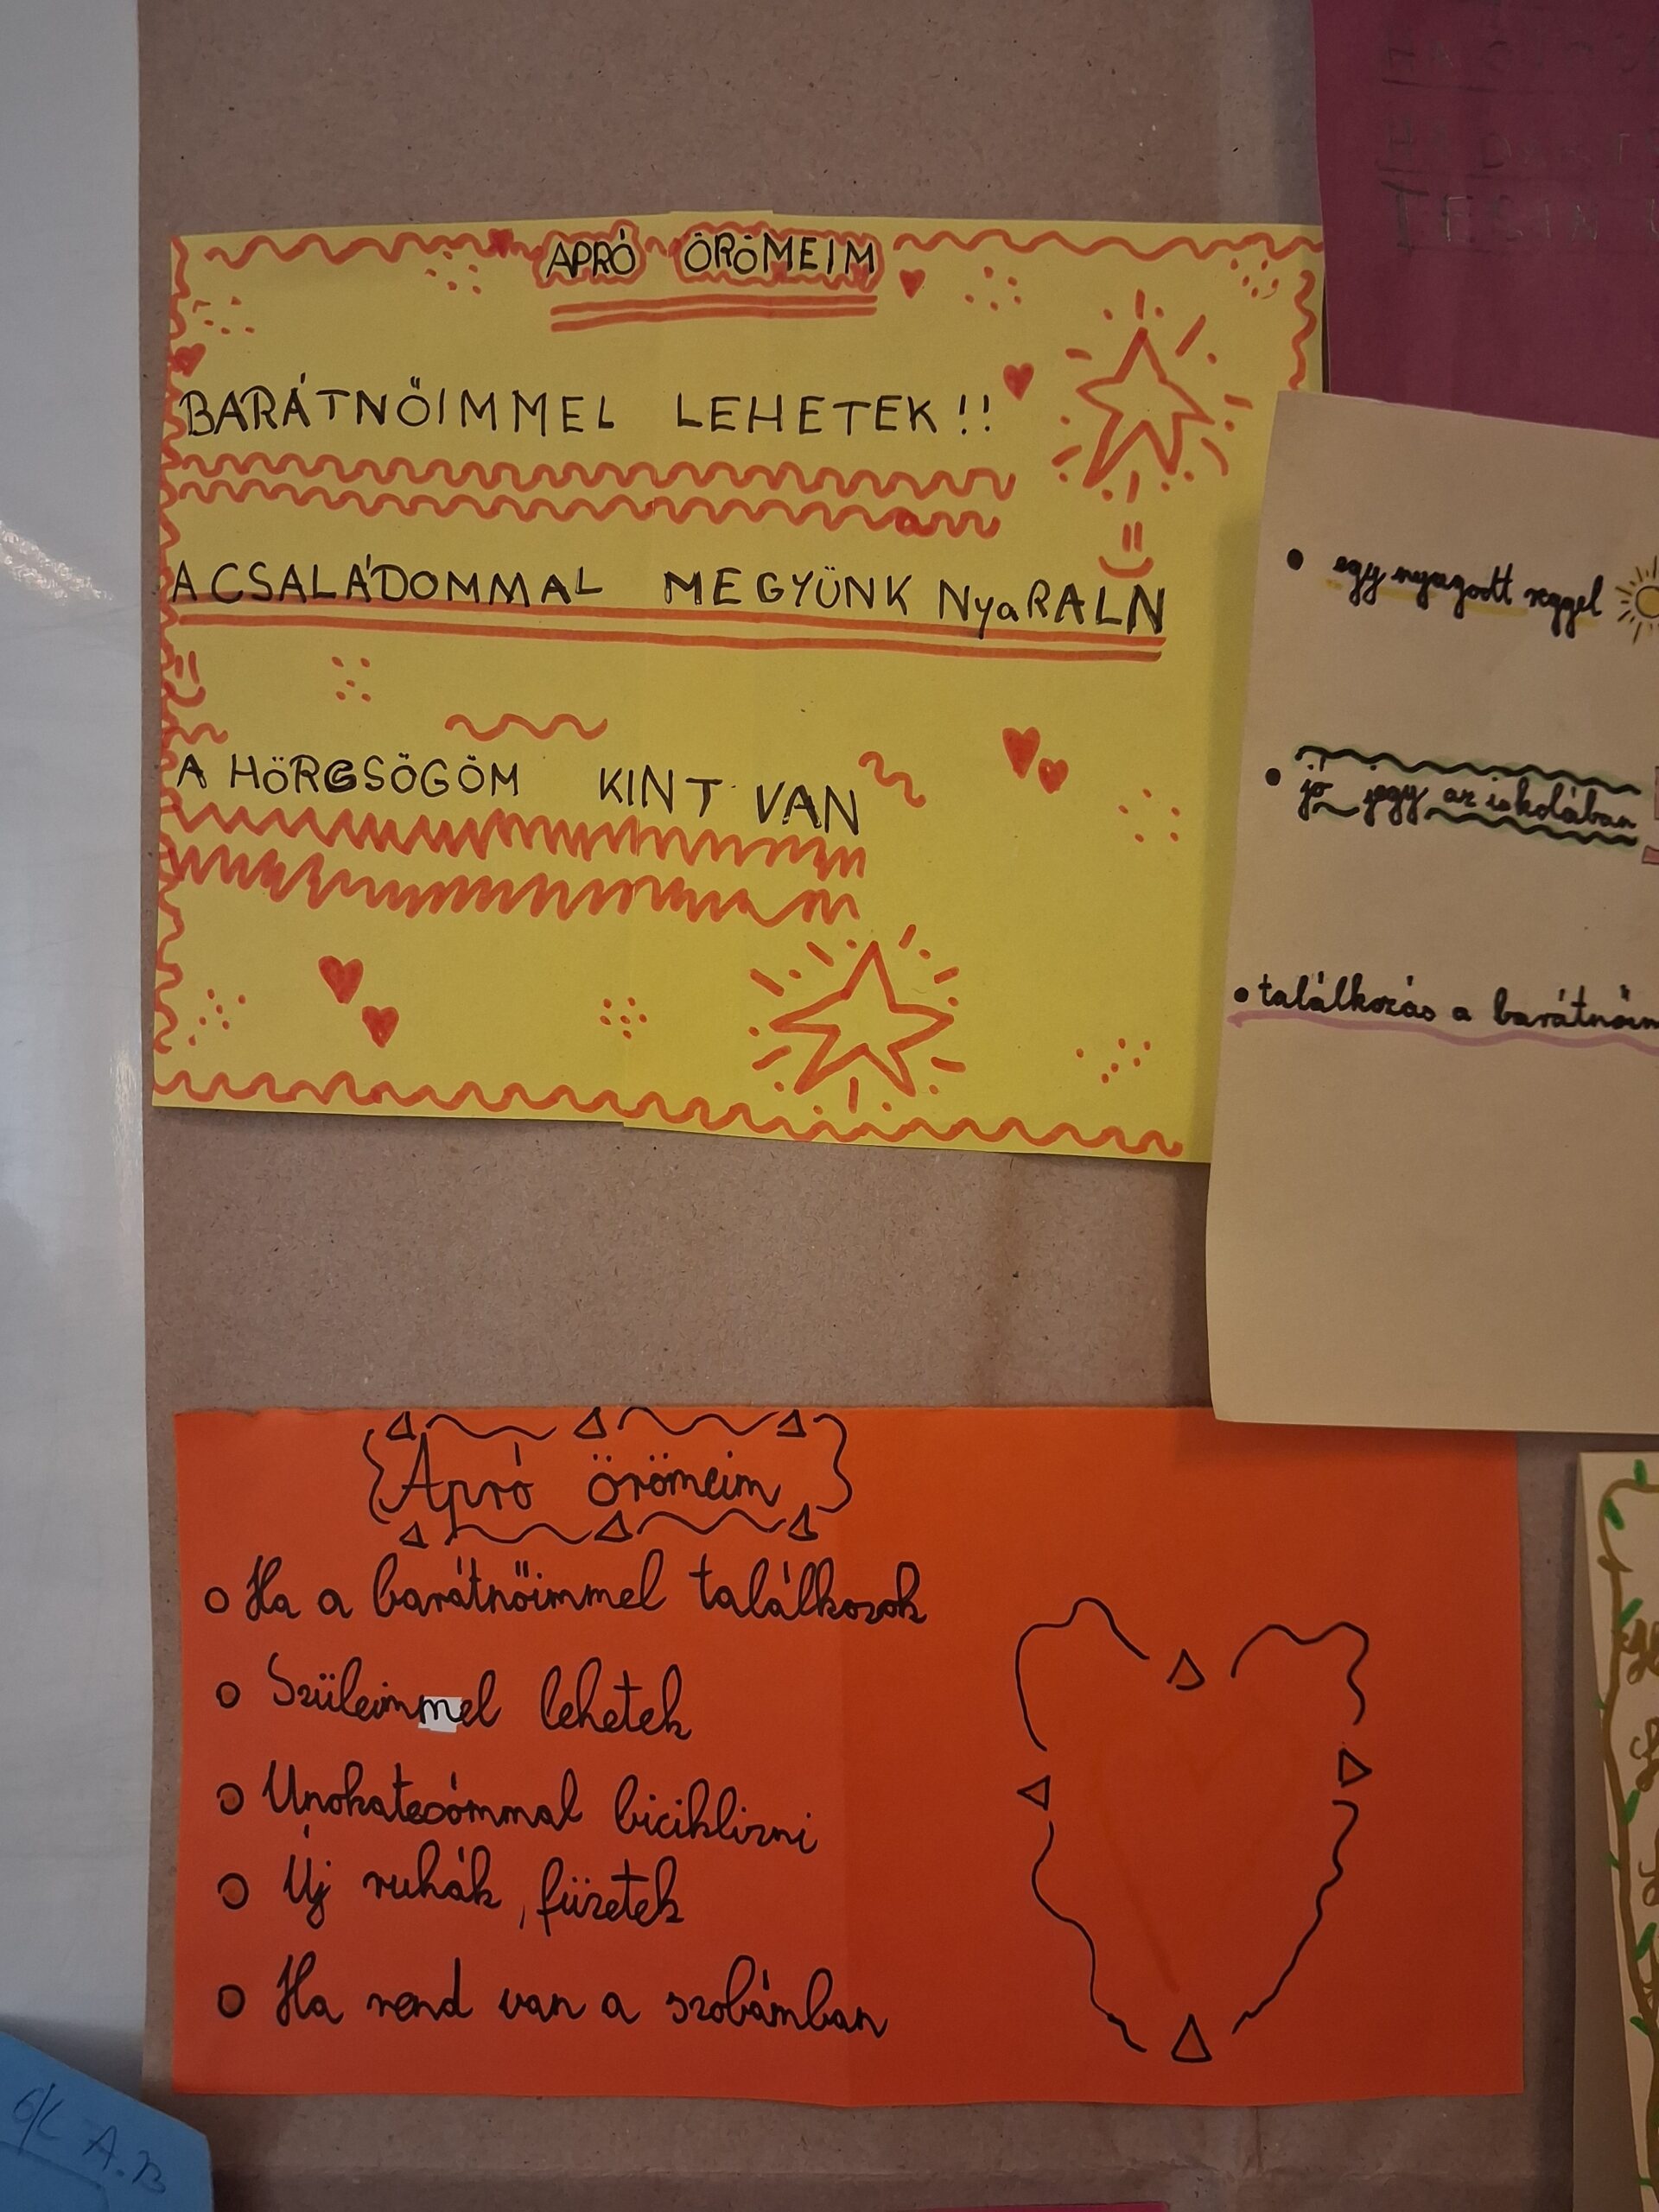 APRÓ ÖRÖMEIM
BARÁTNŐIMMEL LEHETEK!!
A CSALÁDOMMAL MEGYÜNK NyaRALN
A HÖRGSÖGÖM KINT VAN
• egy nyugodt reggel
• jó jegy az iskolában
• találkozás a barátnőim
Apró örömeim
o Ha a barátnőimmel találkozok
o Szüleimmel lehetek
o Unokatesómmal biciklizni
o Új ruhák, füzetek
o Ha rend van a szobámban